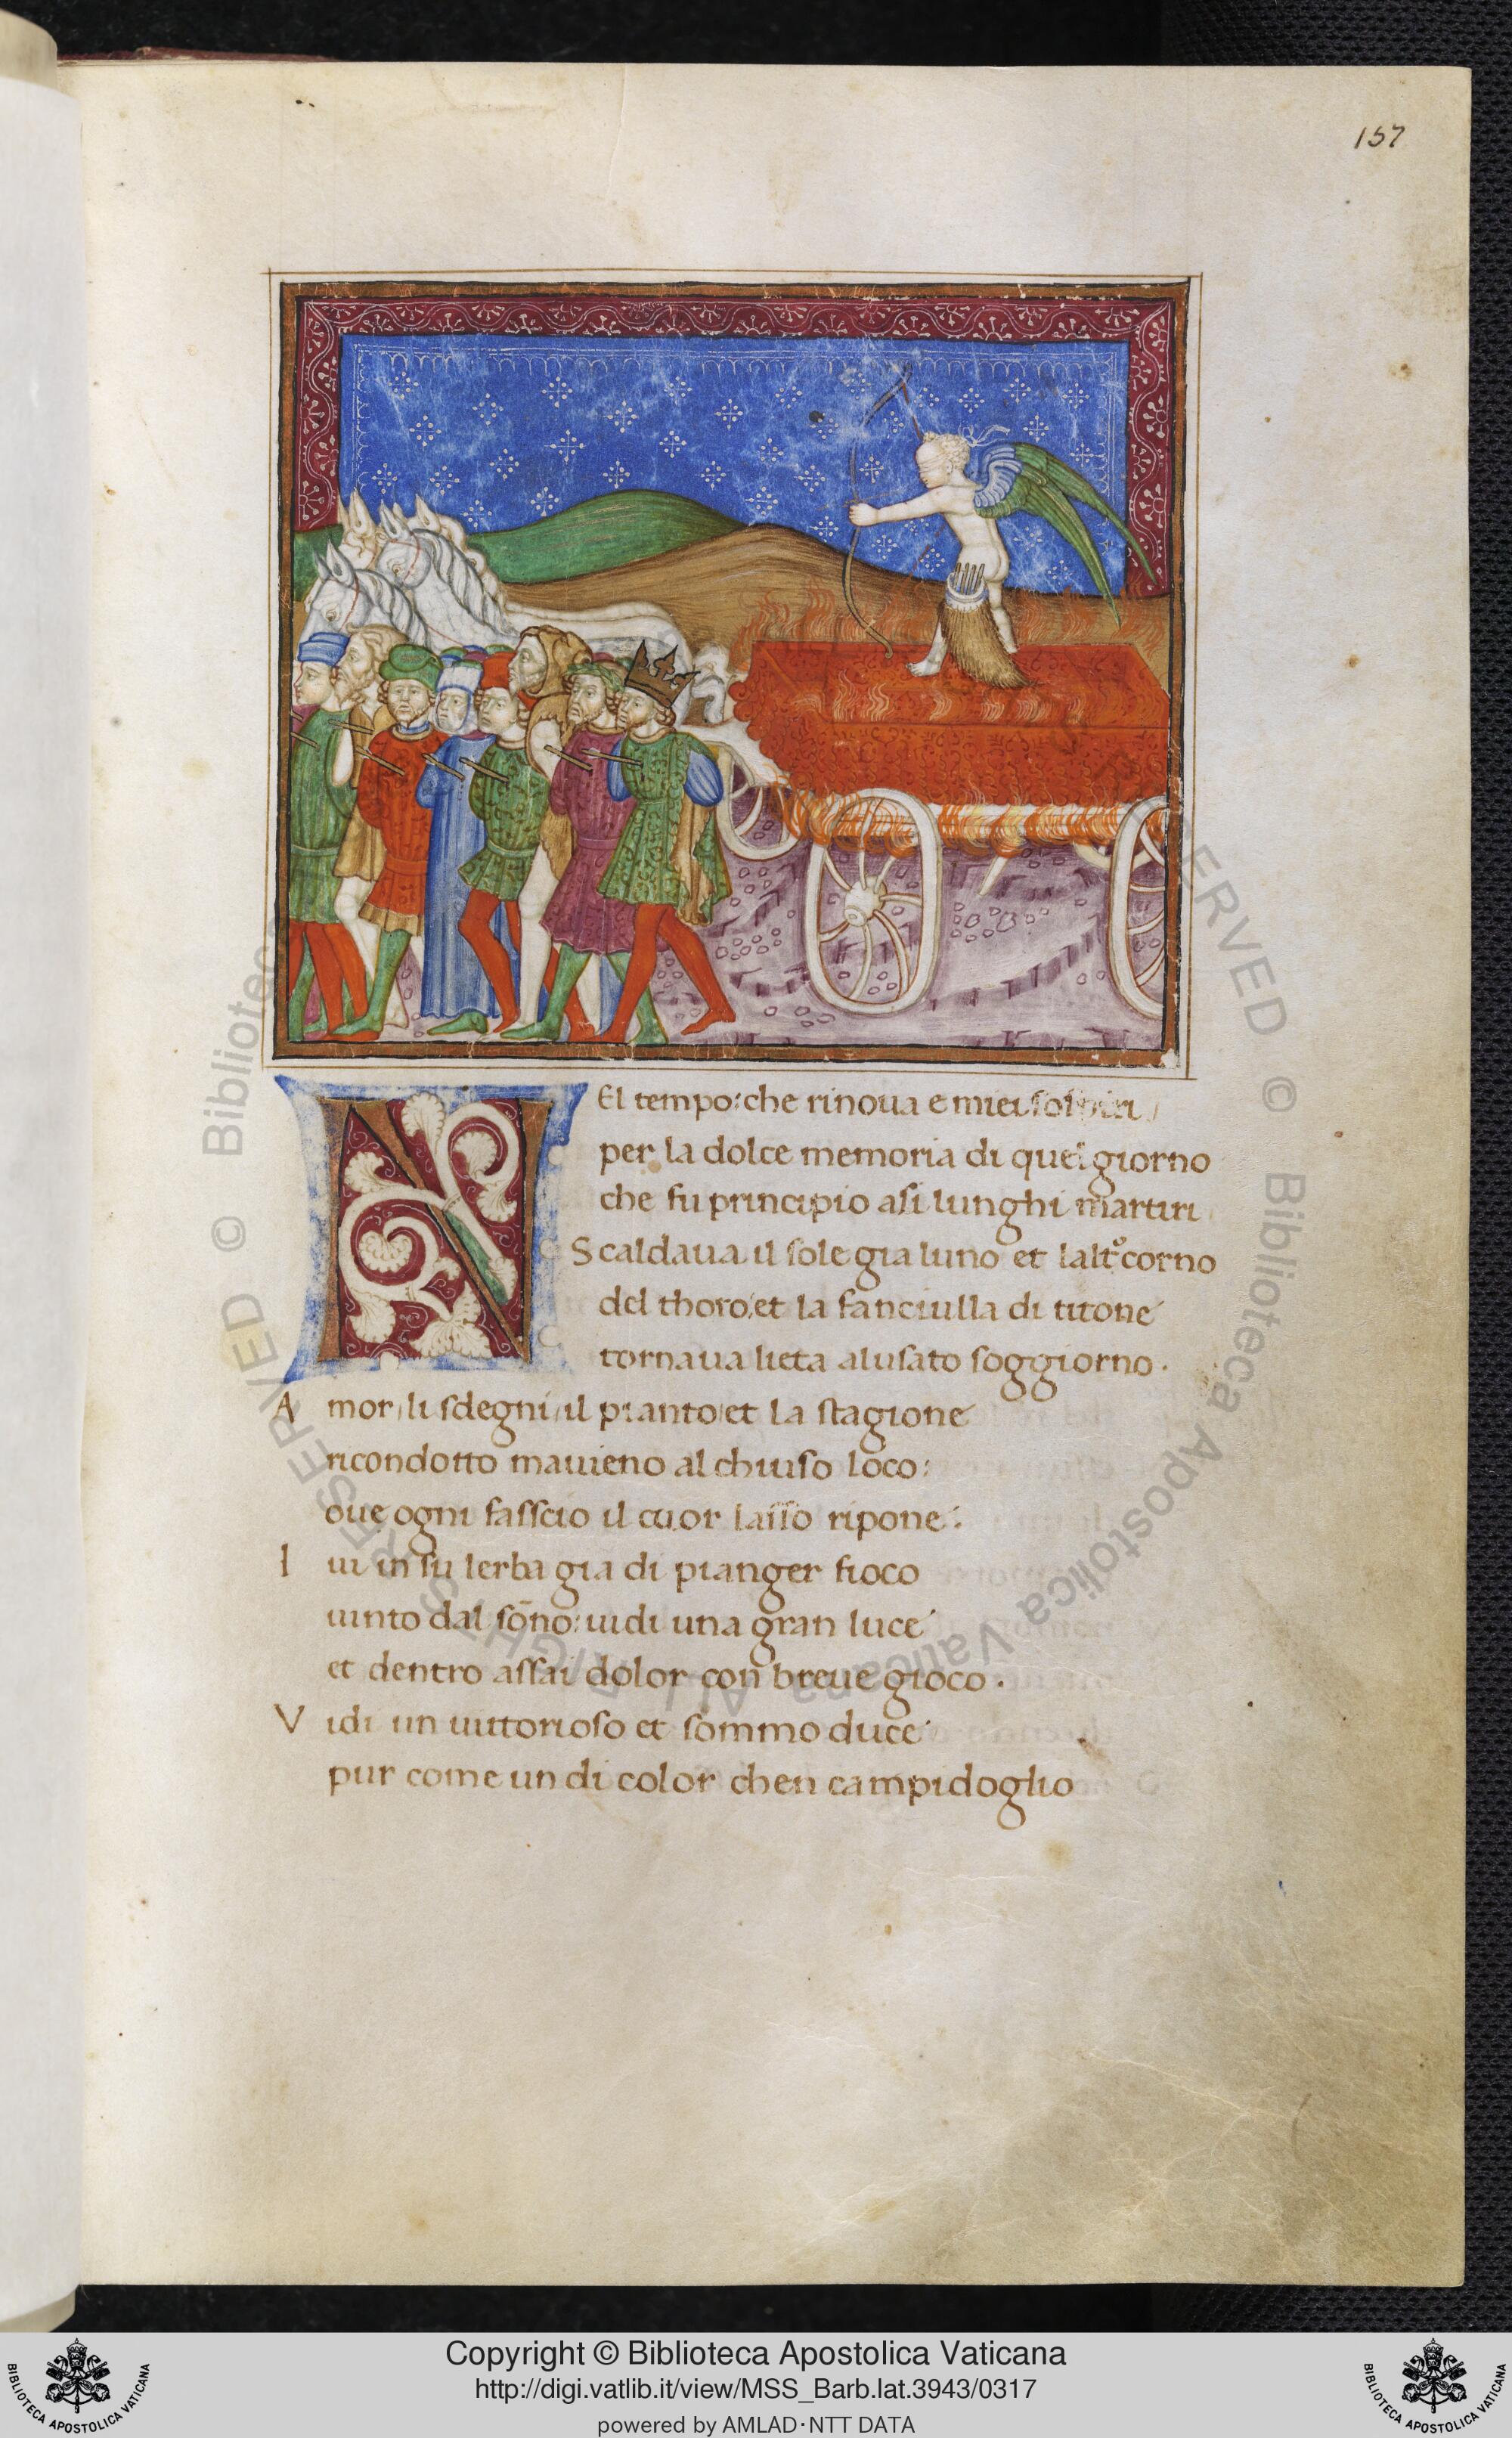 157
NEl tempo: che rinoua e miei sospiri
per la dolce memoria di quel giorno
che fu principio asi lunghi martiri
Scaldaua il sole gia luno et laltº corno
del thoro: et la fanciulla di titone
tornaua lieta alusato soggiorno.
Amor, li sdegni, il pianto et la stagione
ricondotto mauieno al chiuso loco:
oue ogni fasscio il cuor lasso ripone:
Iui in su lerba gia di pianger fioco
uinto dal sōno: uidi una gran luce
et dentro assai dolor con breue gioco.
Vidi un uittorioso et sommo duce
pur come un di color chen campidoglio
© Biblioteca Apostolica Vaticana ALL RIGHTS RESERVED
Copyright © Biblioteca Apostolica Vaticana
http://digi.vatlib.it/view/MSS_Barb.lat.3943/0317
powered by AMLAD·NTT DATA
BIBLIOTECA APOSTOLICA VATICANA
BIBLIOTECA APOSTOLICA VATICANA